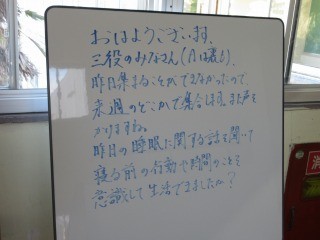 おはようございます。
三役のみなさん(Aは残り)、
昨日集まることができなかったので、
来週のどこかで集合します。また声を
かけますね。
昨日の睡眠に関する話を聞いて
寝る前の行動や時間のことを
意識して生活できましたか?
消